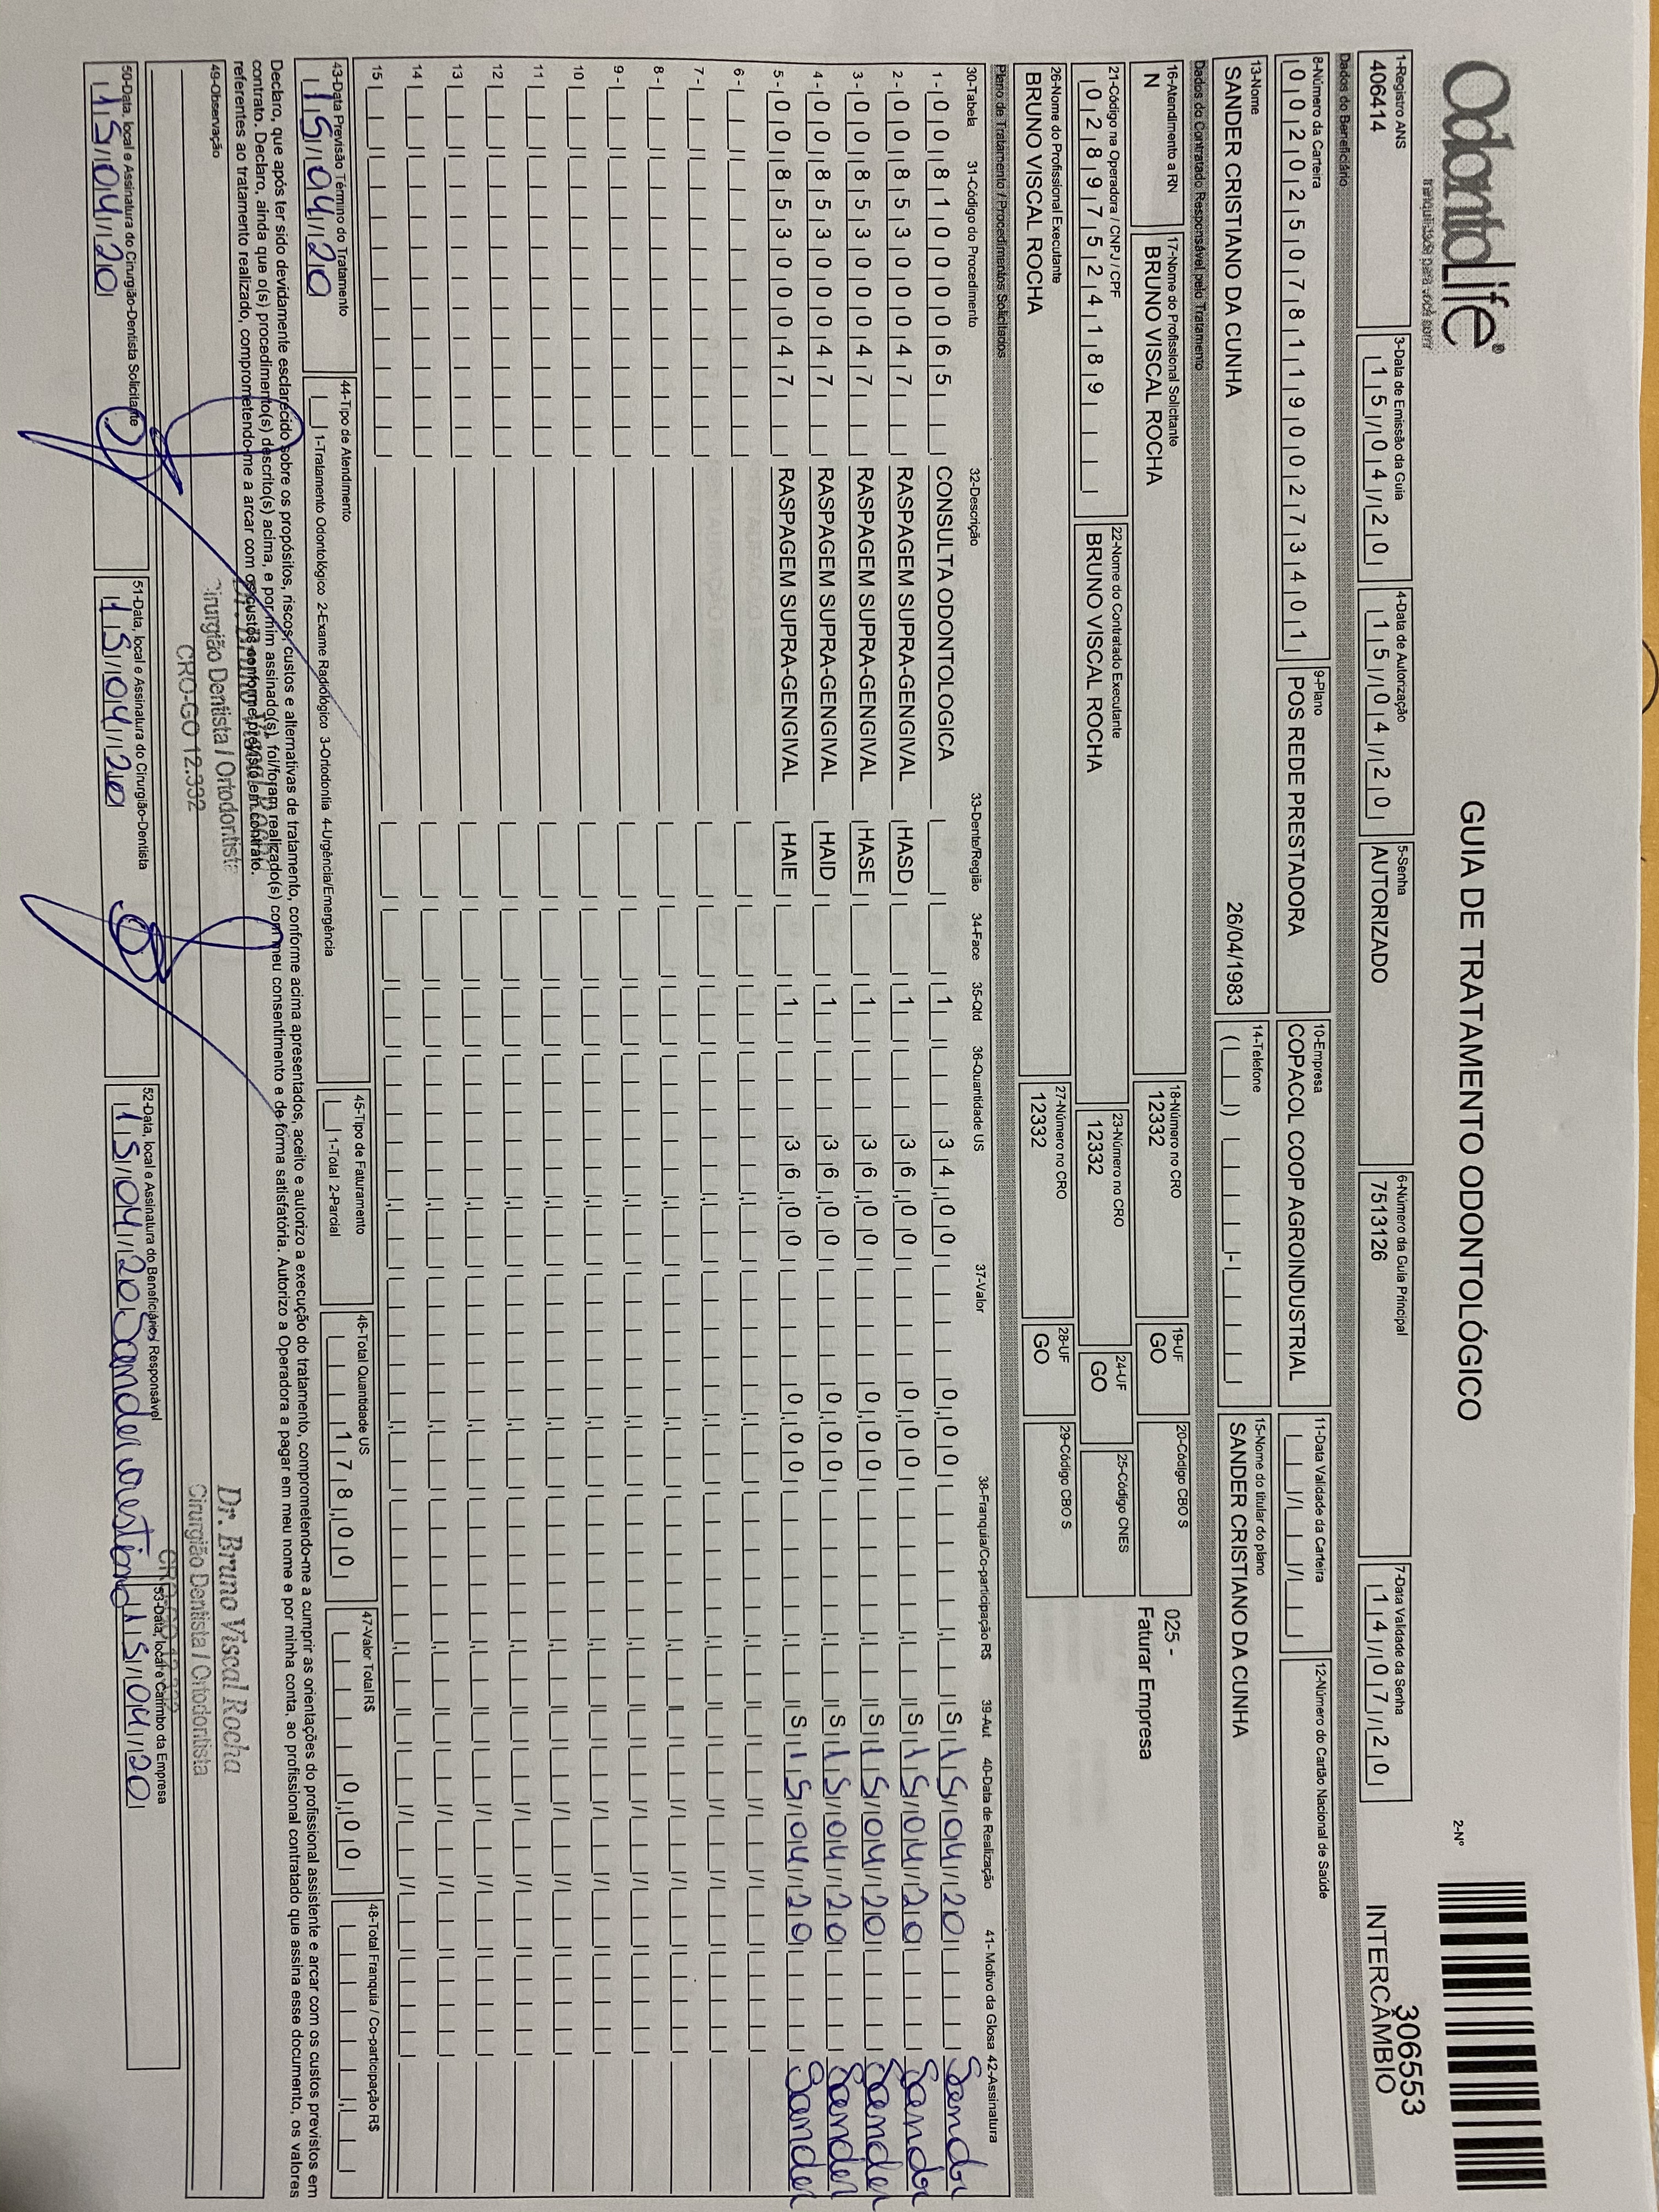 OdontoLife®
tranquilidade para você sorrir
GUIA DE TRATAMENTO ODONTOLÓGICO
2-Nº
306553
INTERCÂMBIO
1-Registro ANS
406414
3-Data de Emissão da Guia
15/04/20
4-Data de Autorização
15/04/20
5-Senha
AUTORIZADO
6-Número da Guia Principal
7513126
7-Data Validade da Senha
14/07/20
Dados do Beneficiário
8-Número da Carteira
00202507811900273401
9-Plano
POS REDE PRESTADORA
10-Empresa
COPACOL COOP AGROINDUSTRIAL
11-Data Validade da Carteira
12-Número do Cartão Nacional de Saúde
13-Nome
SANDER CRISTIANO DA CUNHA 26/04/1983
14-Telefone
15-Nome do titular do plano
SANDER CRISTIANO DA CUNHA
Dados do Contratado Responsável pelo Tratamento
16-Atendimento a RN
N
17-Nome do Profissional Solicitante
BRUNO VISCAL ROCHA
18-Número no CRO
12332
19-UF
GO
20-Código CBO S
025 -
Faturar Empresa
21-Código na Operadora / CNPJ / CPF
02897524189
22-Nome do Contratado Executante
BRUNO VISCAL ROCHA
23-Número no CRO
12332
24-UF
GO
25-Código CNES
26-Nome do Profissional Executante
BRUNO VISCAL ROCHA
27-Número no CRO
12332
28-UF
GO
29-Código CBO S
Plano de Tratamento / Procedimentos Solicitados
30-Tabela 31-Código do Procedimento 32-Descrição 33-Dente/Região 34-Face 35-Qtd 36-Quantidade US 37-Valor 38-Franquia/Co-participação R$ 39-Aut 40-Data de Realização 41- Motivo da Glosa 42-Assinatura
1- 00 81000065 CONSULTA ODONTOLOGICA 1 34,00 0,00 S 15/04/20 Sander
2- 00 85300047 RASPAGEM SUPRA-GENGIVAL HASD 1 36,00 0,00 S 15/04/20 Sander
3- 00 85300047 RASPAGEM SUPRA-GENGIVAL HASE 1 36,00 0,00 S 15/04/20 Sander
4- 00 85300047 RASPAGEM SUPRA-GENGIVAL HAID 1 36,00 0,00 S 15/04/20 Sander
5- 00 85300047 RASPAGEM SUPRA-GENGIVAL HAIE 1 36,00 0,00 S 15/04/20 Sander
6-
7-
8-
9-
10
11
12
13
14
15
43-Data Previsão Término do Tratamento
15/04/20
44-Tipo de Atendimento
1-Tratamento Odontológico 2-Exame Radiológico 3-Ortodontia 4-Urgência/Emergência
45-Tipo de Faturamento
1-Total 2-Parcial
46-Total Quantidade US
178,00
47-Valor Total R$
0,00
48-Total Franquia / Co-participação R$
Declaro, que após ter sido devidamente esclarecido sobre os propósitos, riscos, custos e alternativas de tratamento, conforme acima apresentados, aceito e autorizo a execução do tratamento, comprometendo-me a cumprir as orientações do profissional assistente e arcar com os custos previstos em
contrato. Declaro, ainda que o(s) procedimento(s) descrito(s) acima, e por mim assinado(s), foi/foram realizado(s) com meu consentimento e de forma satisfatória. Autorizo a Operadora a pagar em meu nome e por minha conta, ao profissional contratado que assina esse documento, os valores
referentes ao tratamento realizado, comprometendo-me a arcar com os custos conforme previsto em contrato.
49-Observação
Cirurgião Dentista / Ortodontista
CRO-GO 12.332
Dr. Bruno Viscal Rocha
Cirurgião Dentista / Ortodontista
CRO-GO 12.332
50-Data, local e Assinatura do Cirurgião-Dentista Solicitante
15/04/20
51-Data, local e Assinatura do Cirurgião-Dentista
15/04/20
52-Data, local e Assinatura do Beneficiário/ Responsável
15/04/20 Sander
53-Data, local e Carimbo da Empresa
15/04/20